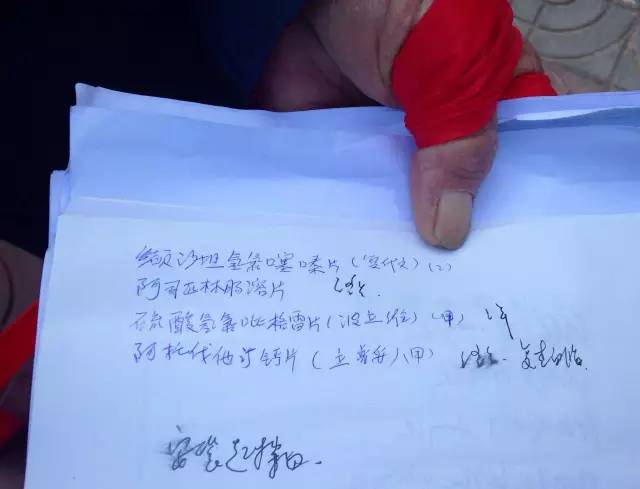 缬沙坦氢氯噻嗪片(复代文)(乙)
阿司匹林肠溶片
硫酸氢氯吡格雷片(波立维)(甲) 1年
阿托伐他汀钙片(立普妥)(甲)
安装起搏